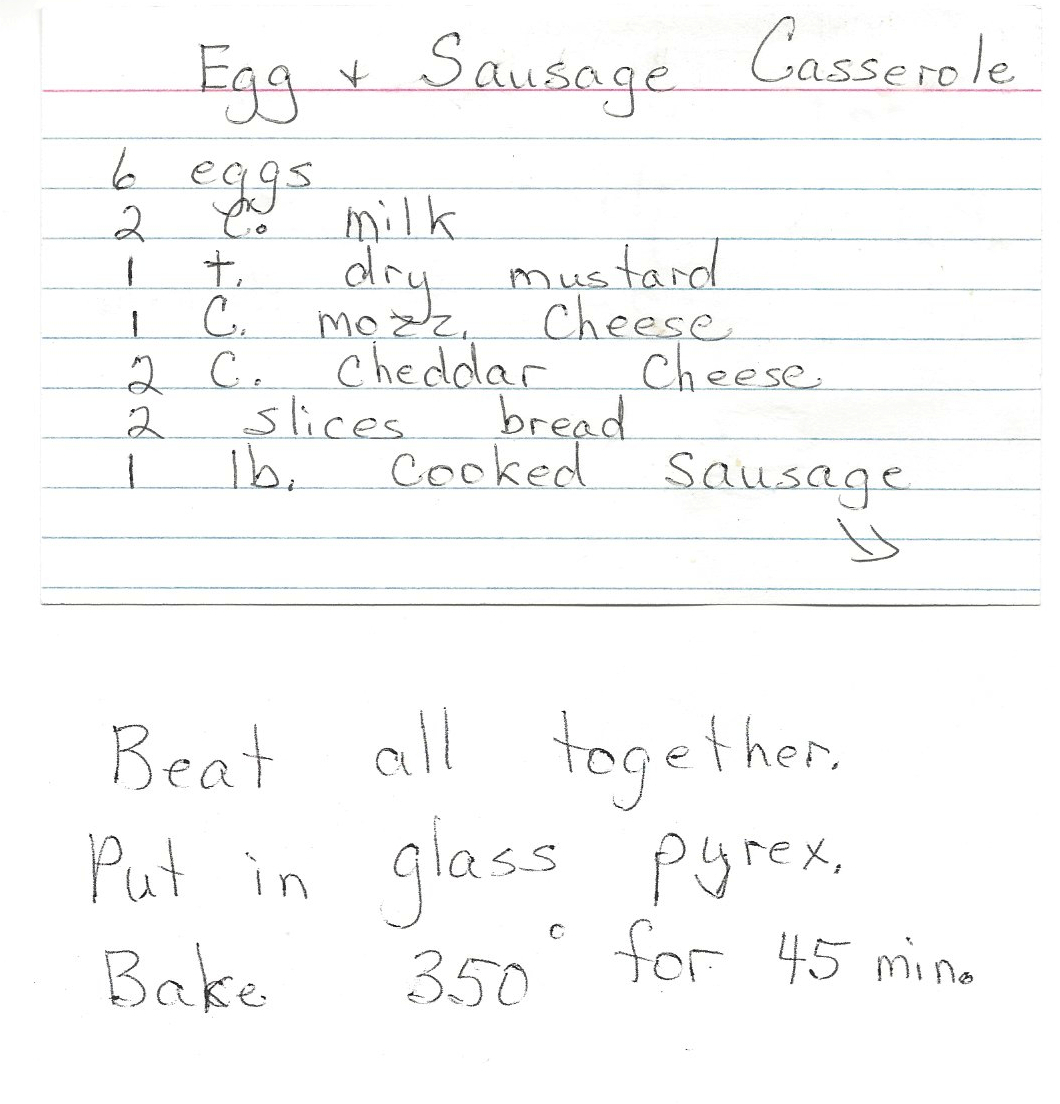 Egg + Sausage Casserole
6 eggs
2 C. milk
1 t. dry mustard
1 C. mozz. Cheese
2 C. Cheddar Cheese
2 slices bread
1 lb. Cooked Sausage
Beat all together.
Put in glass pyrex.
Bake 350° for 45 min.